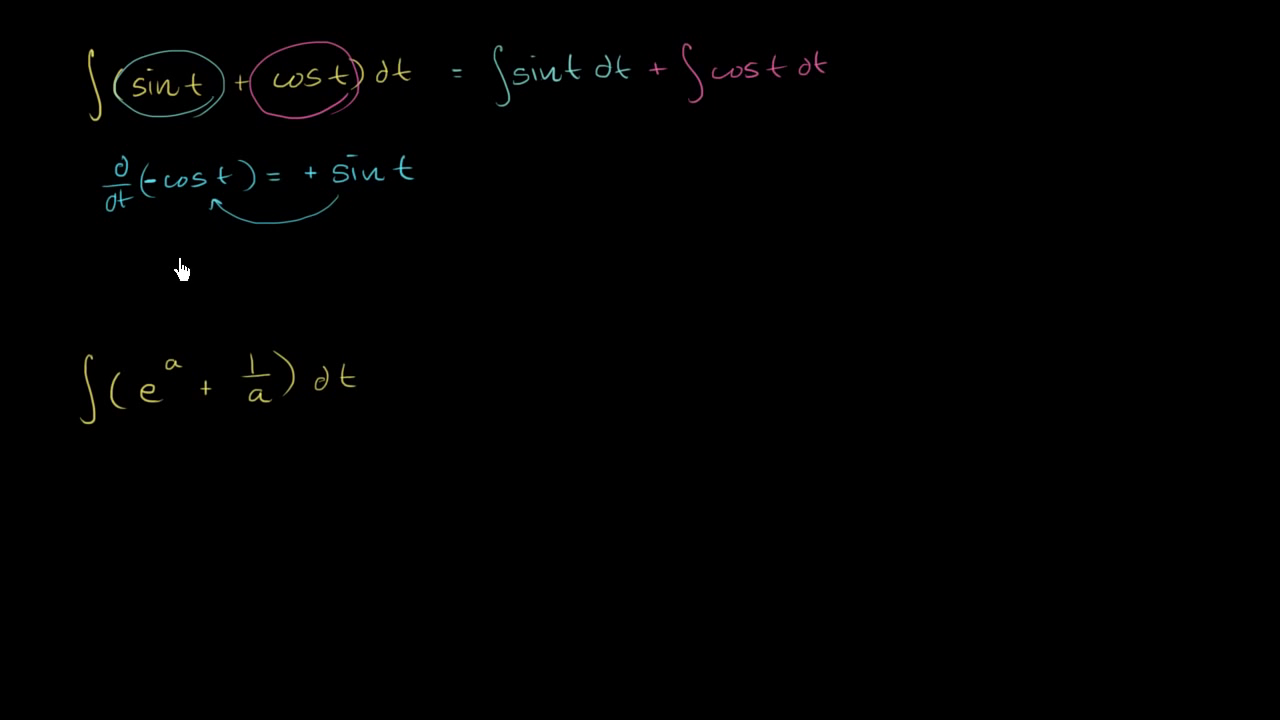 ∫(sin t + cos t) dt = ∫sin t dt + ∫cos t dt
d/dt (-cos t) = + sin t
∫(e^a + 1/a) dt